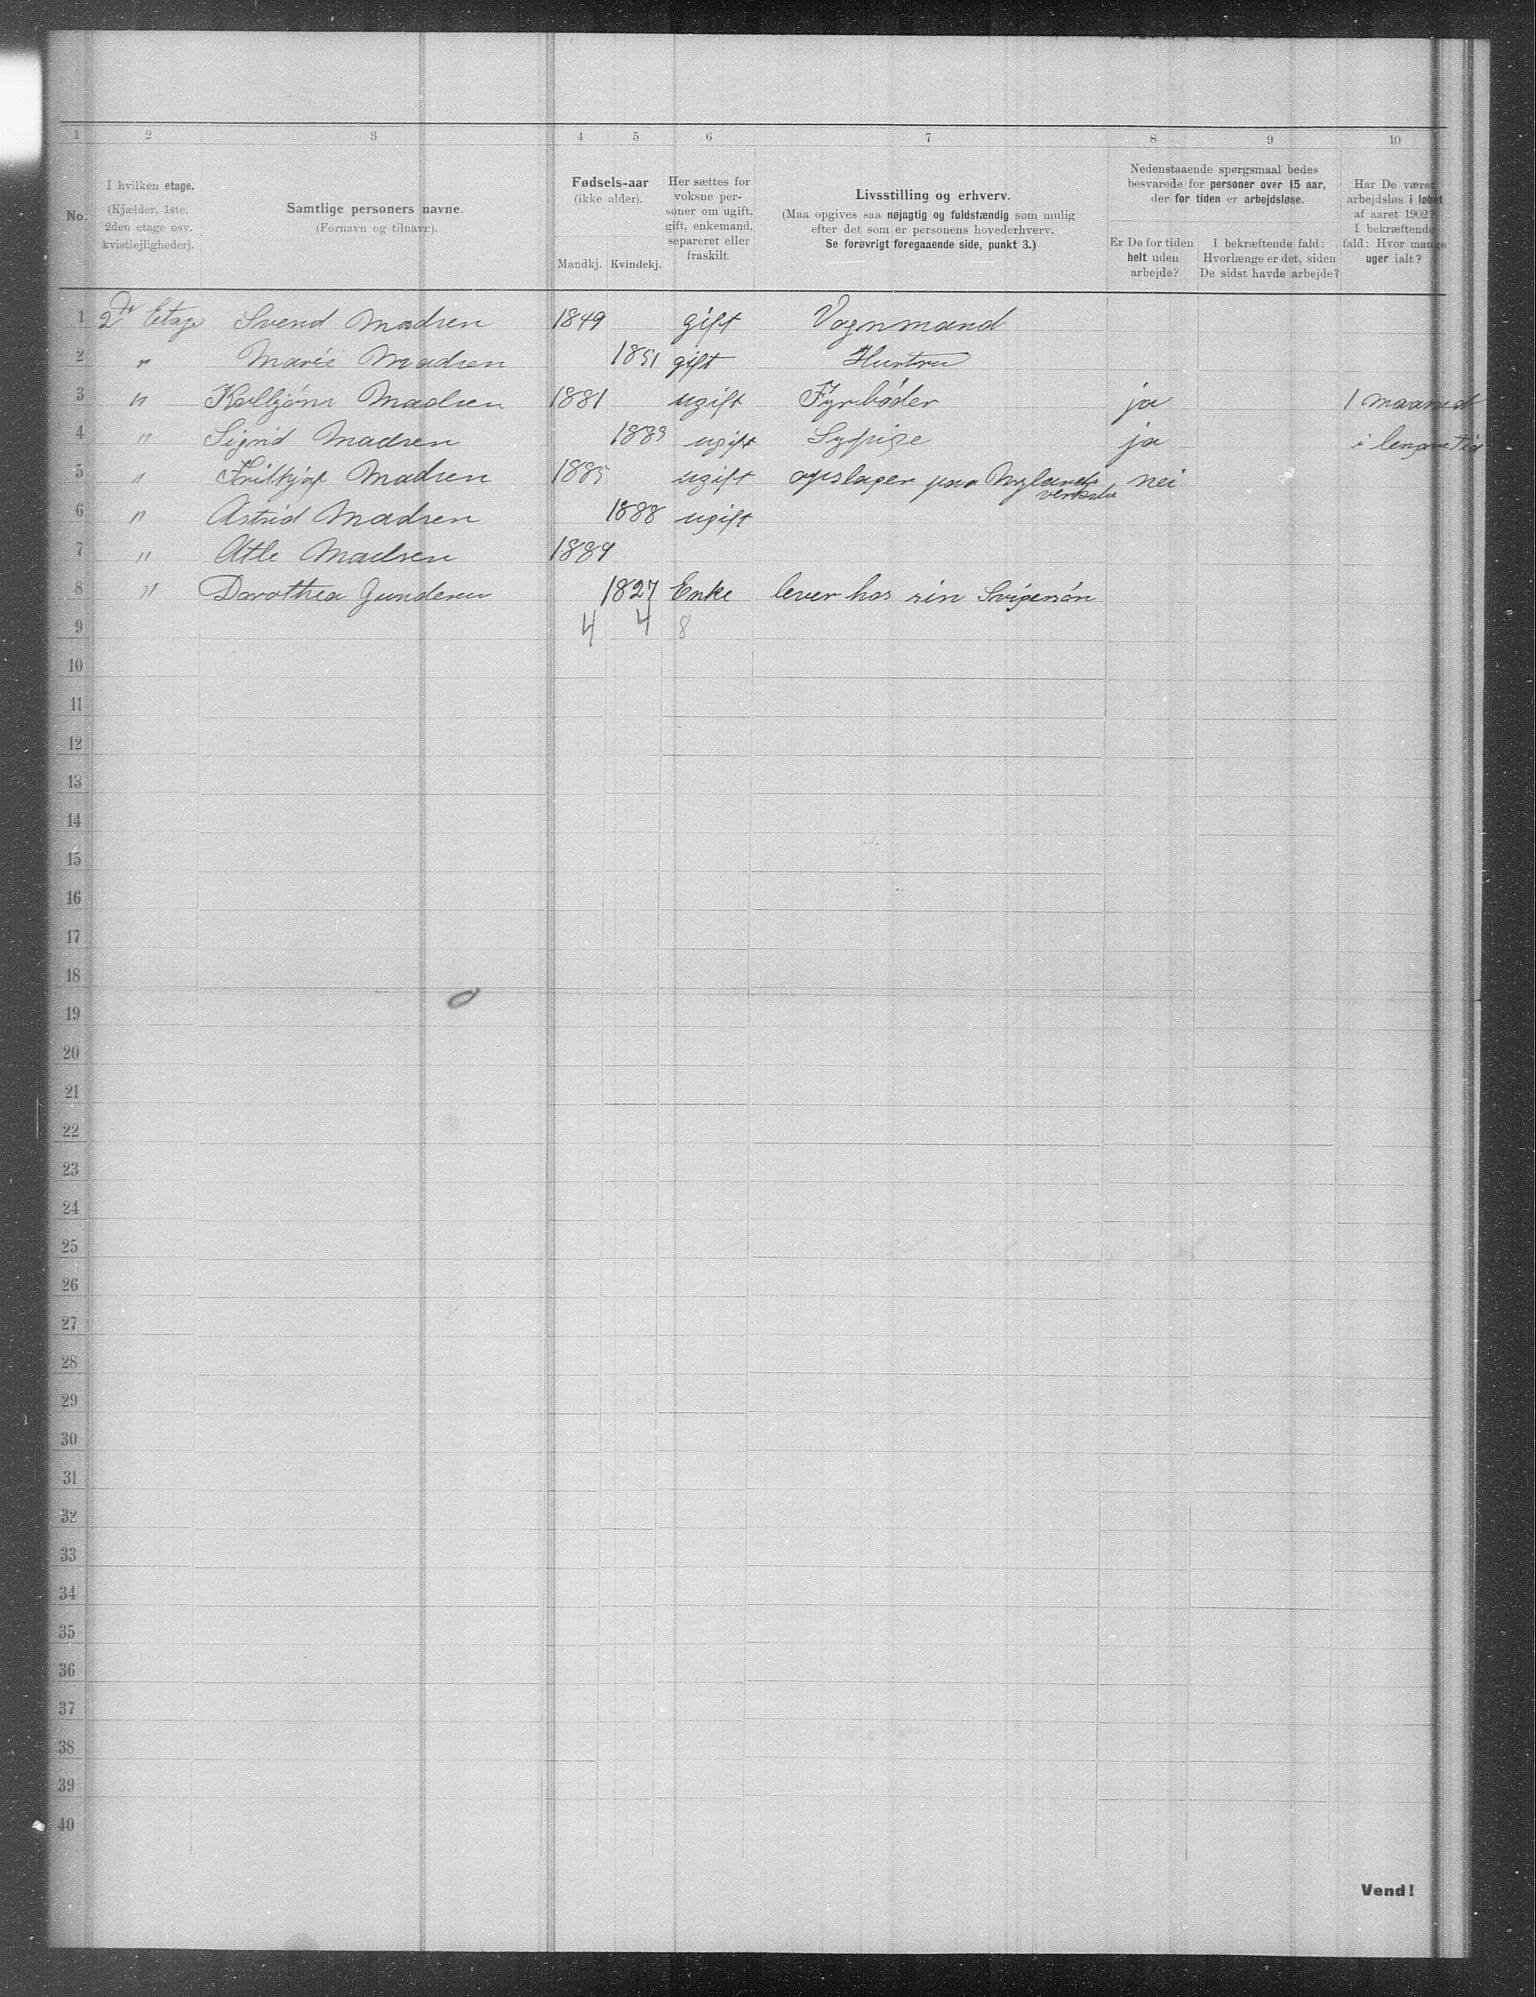 1 2 3 4 5 6 7 8 9 10
No.
I hvilken etage.
(Kjælder, 1ste,
2den etage osv.
kvistlejligheder).
Samtlige personers navne.
(Fornavn og tilnavn).
Fødsels-aar
(ikke alder).
Mandkj. Kvindekj.
Her sættes for
voksne per-
soner om ugift,
gift, enkemand,
separeret eller
fraskilt.
Livsstilling og erhverv.
(Maa opgives saa nøjagtig og fuldstændig som mulig
efter det som er personens hovederhverv.
Se forøvrigt foregaaende side, punkt 3.)
Nedenstaaende spørgsmaal bedes
besvarede for personer over 15 aar,
der for tiden er arbejdsløse.
Er De for tiden
helt uden
arbejde?
I bekræftende fald:
Hvorlænge er det, siden
De sidst havde arbejde?
Har De været
arbejdsløs i løbet
af aaret 1902?
I bekræftende
fald: Hvor mange
uger ialt?
1 2 Etage Svend Madsen 1849 gift Vognmand
2 " Marie Madsen 1851 gift Hustru
3 " Madsen 1881 ugift Fyrbøder ja 1 maaned
4 " Sigrid Madsen 1883 ugift Sypige ja i lengre Tid
5 " Madsen 1885 ugift opslager paa Nylands verksted nei
6 " Astrid Madsen 1888 ugift
7 " Atle Madsen 1889
8 " Dorothea Gundersen 1827 Enke lever hos sin Svigersøn
9 4 4 8
10
11
12
13
14
15
16
17
18
19
20
21
22
23
24
25
26
27
28
29
30
31
32
33
34
35
36
37
38
39
40
Vend!